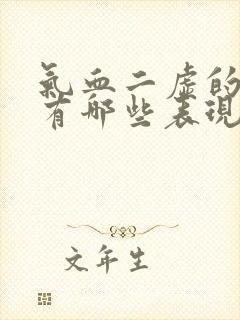 氣血二虛的
有哪些表現
文年生